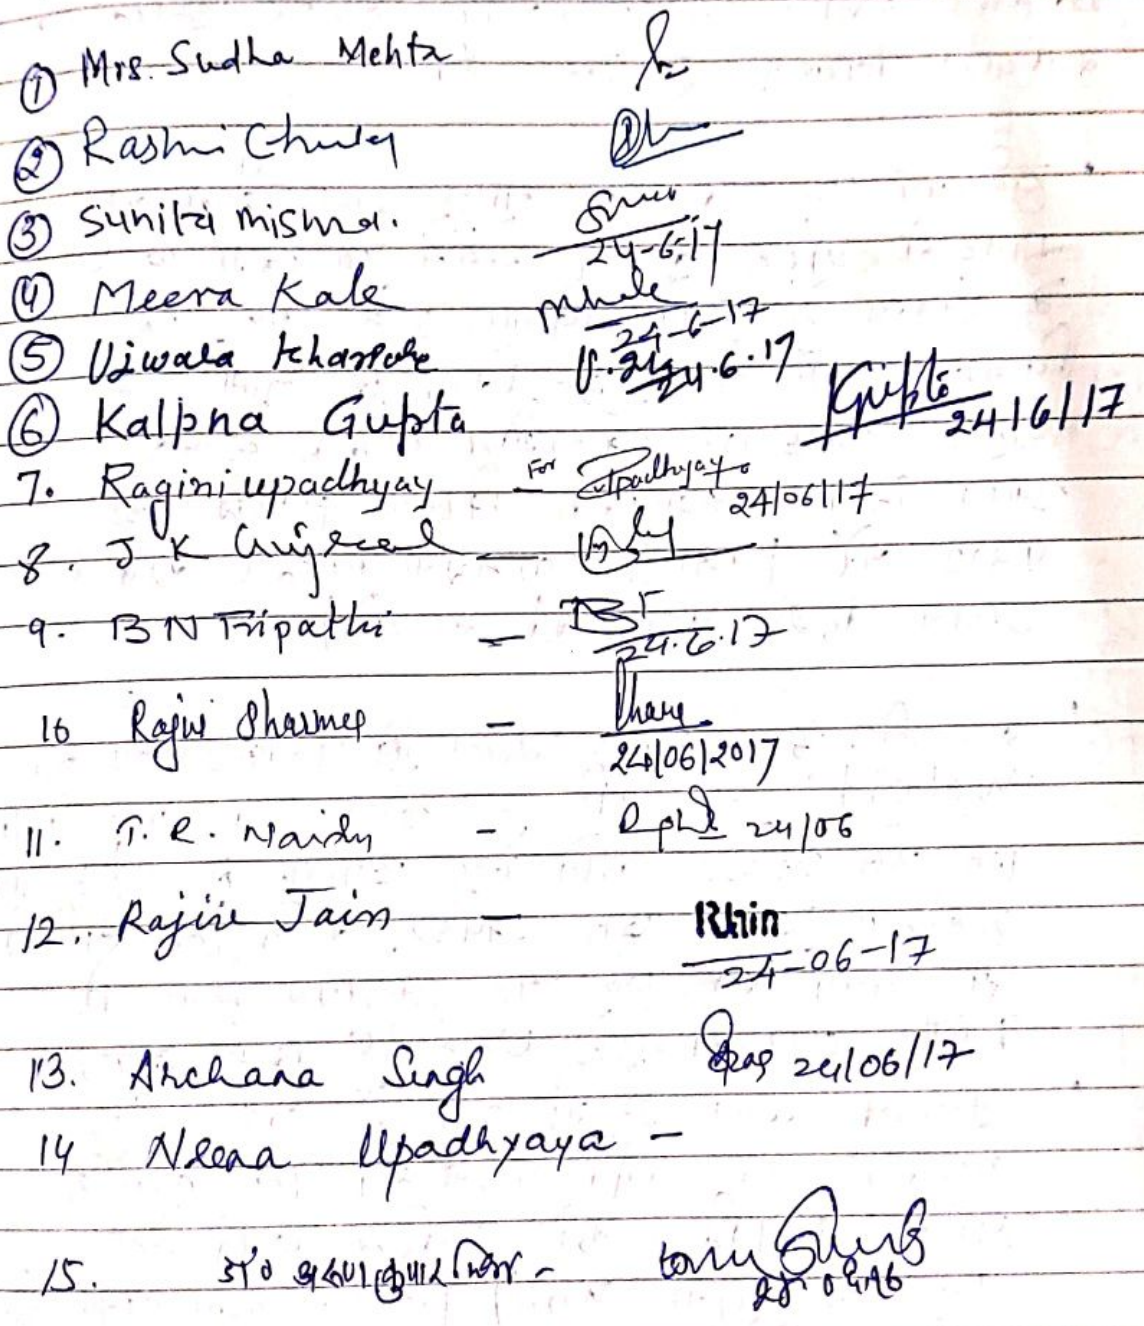 ① Mrs. Sudha Mehta
② Rashmi
③ Sunita mishra. 24-6-17
④ Meera Kale 24-6-17
⑤ Ujwala 24.6.17
⑥ Kalpna Gupta Gupta 24/6/17
7. Ragini upadhyay - For Upadhyay 24/06/17
8. J K Gujral -
9. B N Tripathi - BT 24.6.17
10 Rajiv Sharma - 24/06/2017
11. T. R. Naidu - 24/06
12. Rajive Jain - 24-06-17
13. Archana Singh 24/06/17
14 Neena Upadhyaya -
15. डॉ० कुमार -